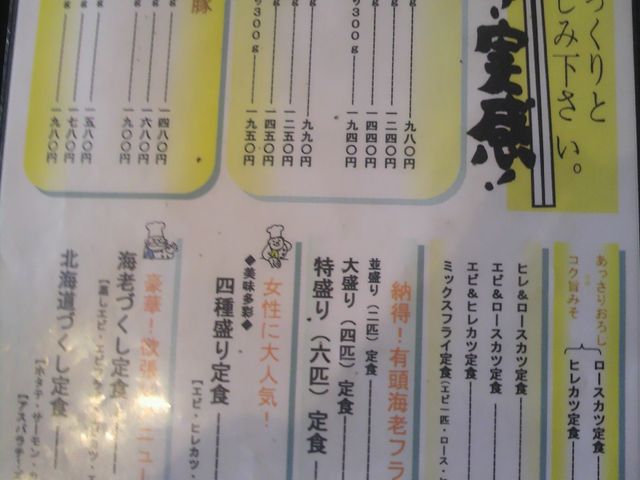 っくりと
しみ下さい。
実感!
九八〇円
一二四〇円
一四四〇円
３００ｇ 一九四〇円
九九〇円
一二五〇円
一四五〇円
３００ｇ 一九五〇円
豚
一四八〇円
一六八〇円
一九八〇円
一五八〇円
一七八〇円
一九八〇円
あっさりおろし
コク旨みそ
ロースカツ定食
ヒレカツ定食
ヒレ&ロースカツ定食
エビ&ロースカツ定食
エビ&ヒレカツ定食
ミックスフライ定食(エビ一匹・ロース・ヒ
納得!有頭海老フラ
並盛り(二匹)定食
大盛り(四匹)定食
特盛り(六匹)定食
女性に大人気!
◆美味多彩◆
四種盛り定食
【エビ・ヒレカツ・
豪華!欲張りメニュー
海老づくし定食
北海道づくし定食
【ホタテ・サーモン・
【アスパラチーズ